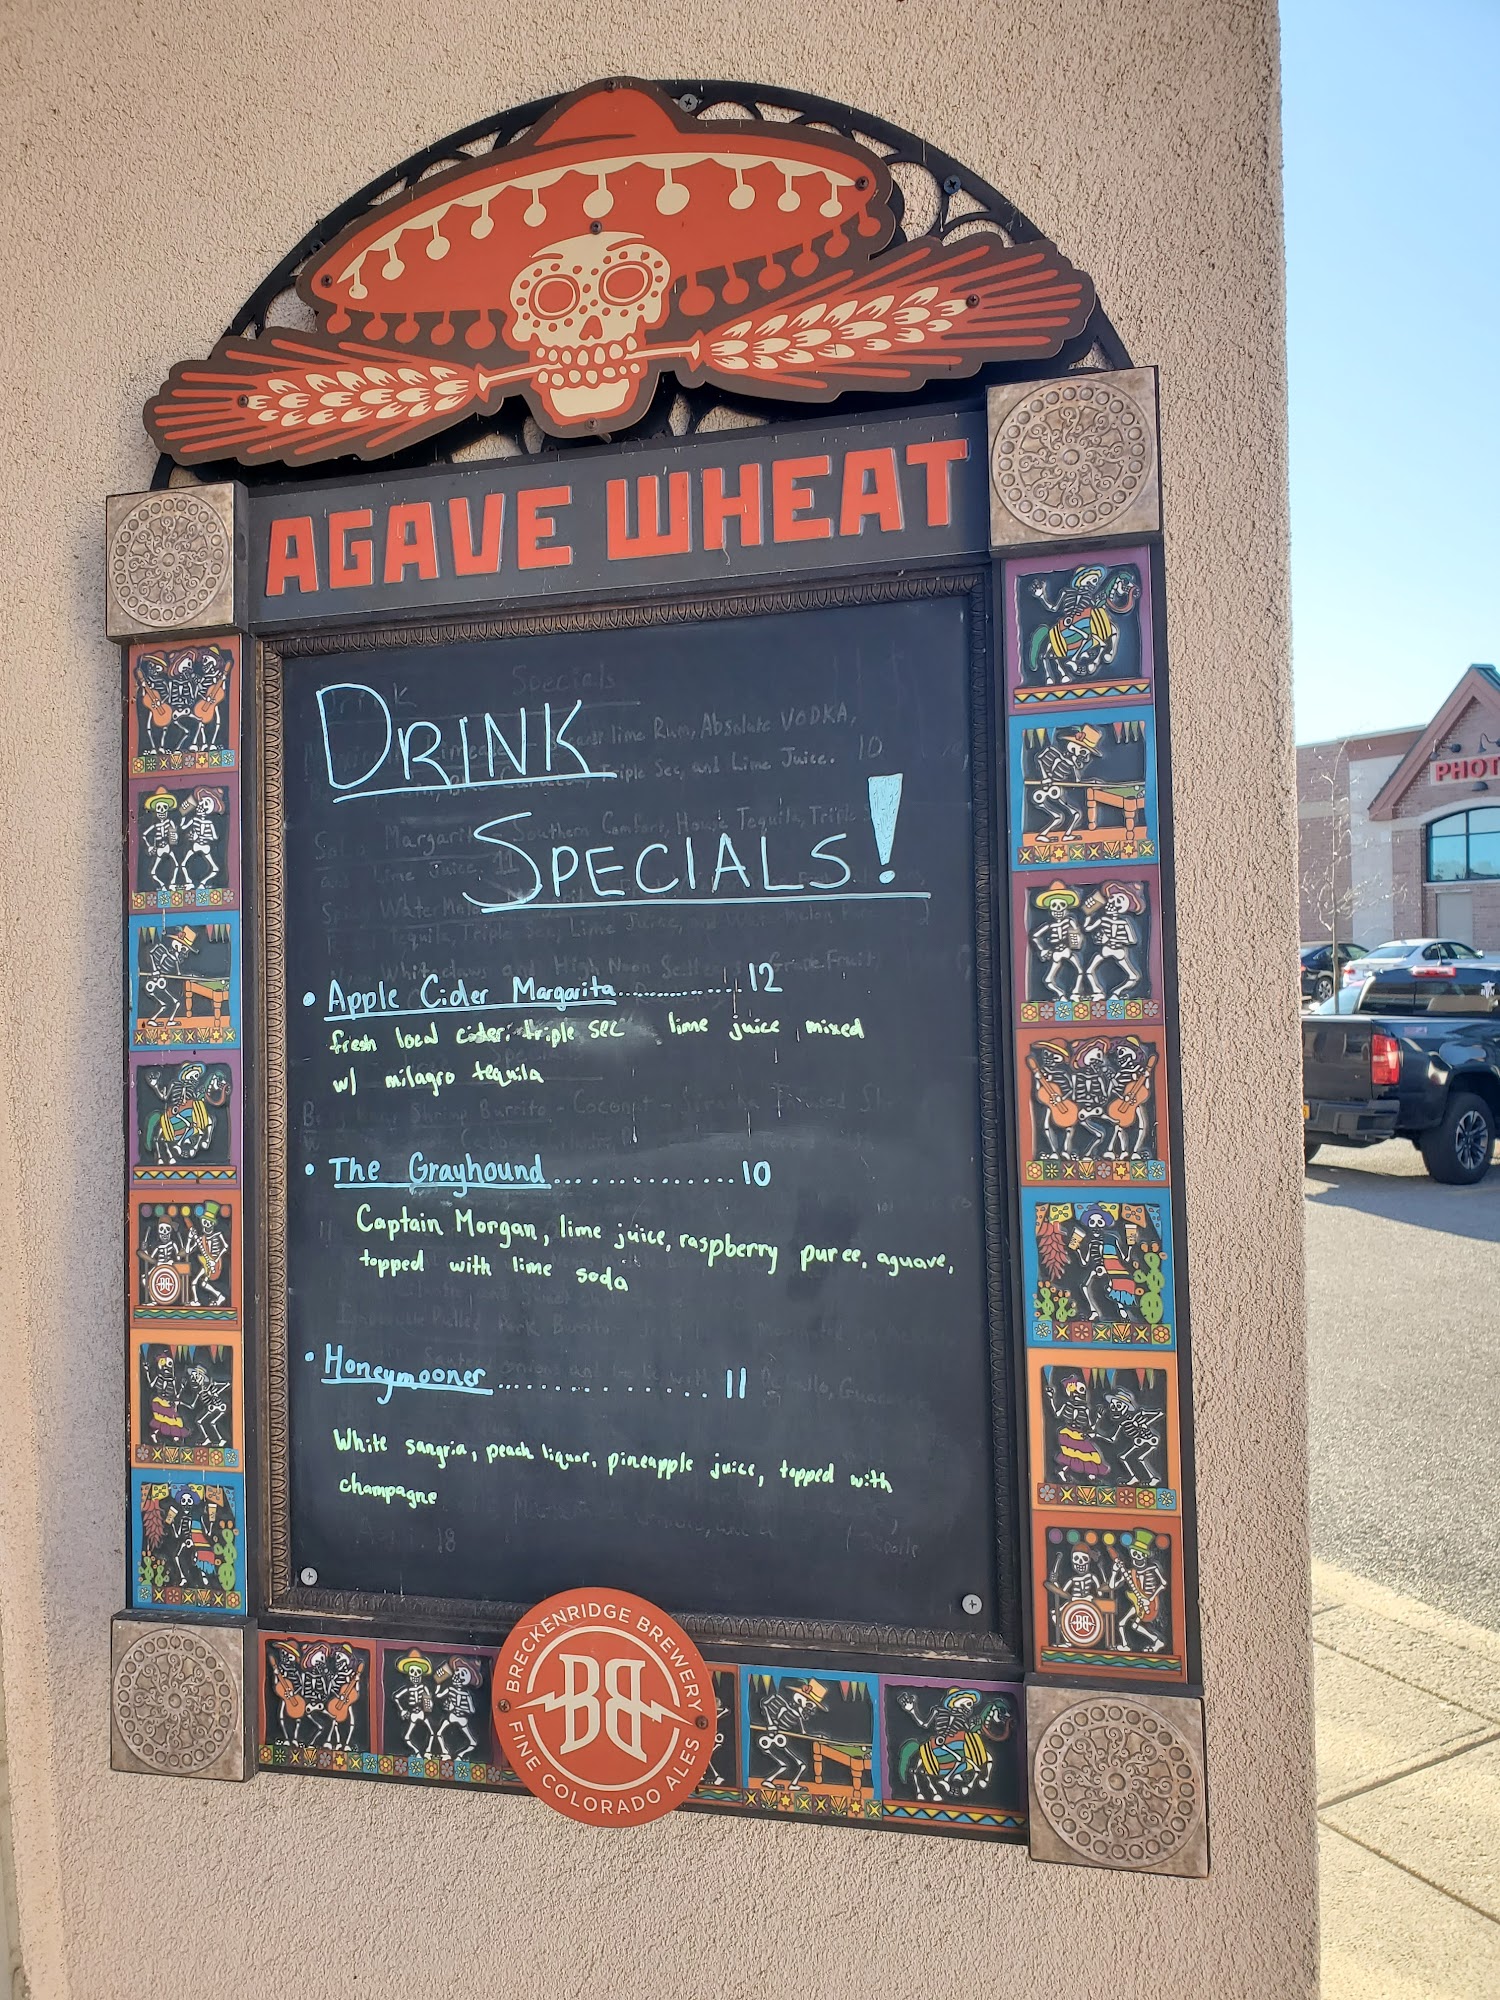 AGAVE WHEAT
DRINK
SPECIALS!
• Apple Cider Margarita..............12
fresh local cider, triple sec lime juice mixed
w/ milagro tequila
• The Grayhound..............10
Captain Morgan, lime juice, raspberry puree, aguave,
topped with lime soda
• Honeymooner..............11
White sangria, peach liquor, pineapple juice, topped with
champagne
BRECKENRIDGE BREWERY
BB
FINE COLORADO ALES
PHOT